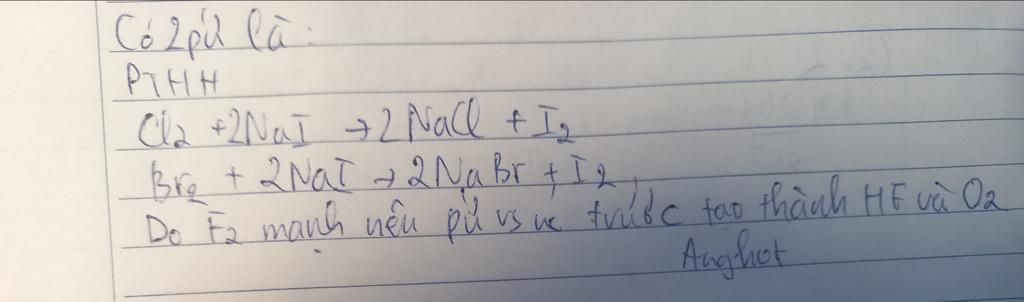 Có 2 pứ là:
PTHH
Cl2 + 2NaI → 2NaCl + I2
Br2 + 2NaI → 2NaBr + I2
Do F2 mạnh nên pứ vs nc trước tạo thành HF và O2
Anghot